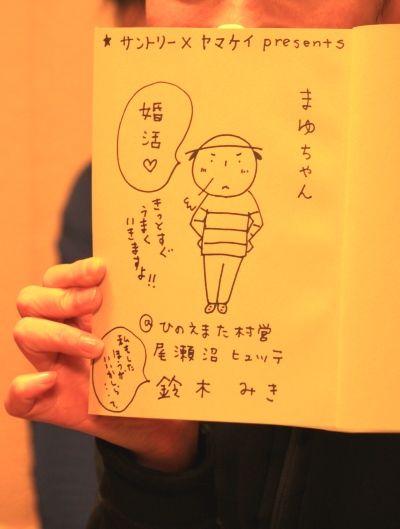 ★ サントリー×ヤマケイ presents
まゆちゃん
婚
活
♡
きっとすぐ
うまく
いきますよ!!
@ひのえまた村営
尾瀬沼 ヒュッテ
鈴木 みき
私もした
ほうが
いいかしら…